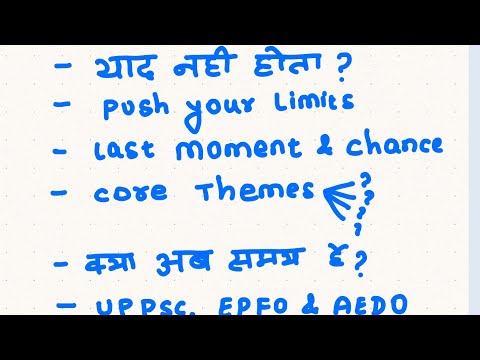 - याद नही होता ?
- Push your Limits
- Last moment & chance
- Core Themes ? ? ? ?
- क्या अब समय है ?
- UPPSC, EPFO & AEDO